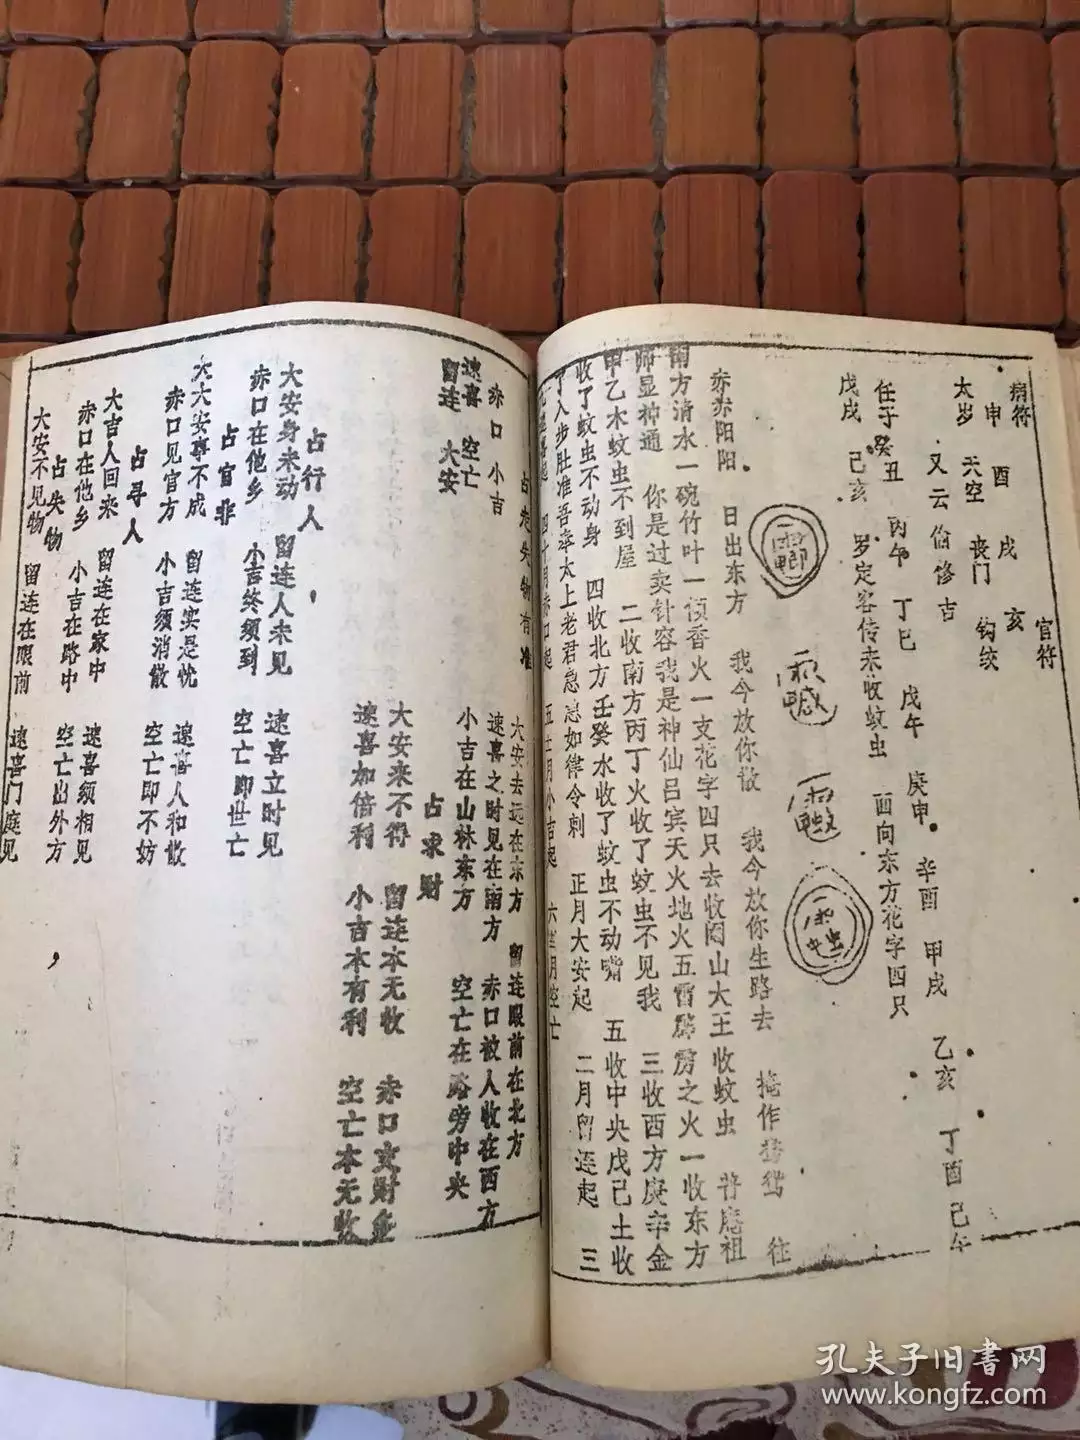 病符
官符
申 酉 戌 亥
太岁 天空 丧门 钩绞
又云偷修吉
任子癸丑 丙午 丁巳 戊午 庚申 辛酉 甲戌 乙亥 丁酉 己午
戊戌 己亥 罗定容传来收蚊虫 面向东方花字四只
赤赤阳阳 日出东方 我今放你散 我今放你生路去 掩作鸳鸯 往
南方清水一碗竹叶一桢香火一支花字四只去收闷山大王收蚊虫 昔庵祖
师显神通 你是过卖针容我是神仙吕宾天火地火五雷霹雳之火一收东方
甲乙木蚊虫不到屋 二收南方丙丁火收了蚊虫不见我 三收西方庚辛金
收了蚊虫不动身 四收北方壬癸水收了蚊虫不动嘴 五收中央戊己土收
了人步肚准吾奉太上老君急急如律令刺 正月大安起 二月留连起 三
四十月赤口起 五十一月小吉起 六十二月空亡
占走失物有准
赤口 小吉
速喜 空亡
留连 大安
大安去远在东方 留连眼前在北方
速喜之时见在南方 赤口被人收在西方
小吉在山林东方 空亡在路旁中央
占求财
大安来不得 留连本无收 赤口文财
速喜加倍利 小吉本有利 空亡本无收
占行人
大安身未动 留连人未见 速喜立时见
赤口在他乡 小吉终须到 空亡即世亡
占官非
大大安事不成 留连实是忧 速喜人和散
赤口见官方 小吉须消散 空亡即不妨
占寻人
大吉人回来 留连在家中 速喜须相见
赤口在他乡 小吉在路中 空亡出外方
占失物
大安不见物 留连在眼前 速喜门庭见
孔夫子旧書网
www.kongfz.com